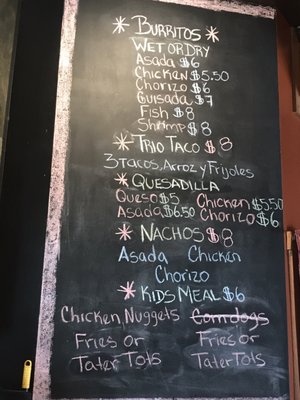 * BURRITOS *
WET OR DRY
Asada $6
Chicken $5.50
Chorizo $6
Guisada $7
Fish $8
Shrimp $8
* TRIO TACO $8
3 TACOS, Arroz y Frijoles
* QUESADILLA
Queso $5 Chicken $5.50
Asada $6.50 Chorizo $6
* NACHOS $8
Asada Chicken
Chorizo
* KIDS MEAL $6
Chicken Nuggets Corn dogs
Fries Or Fries Or
Tater Tots Tater Tots